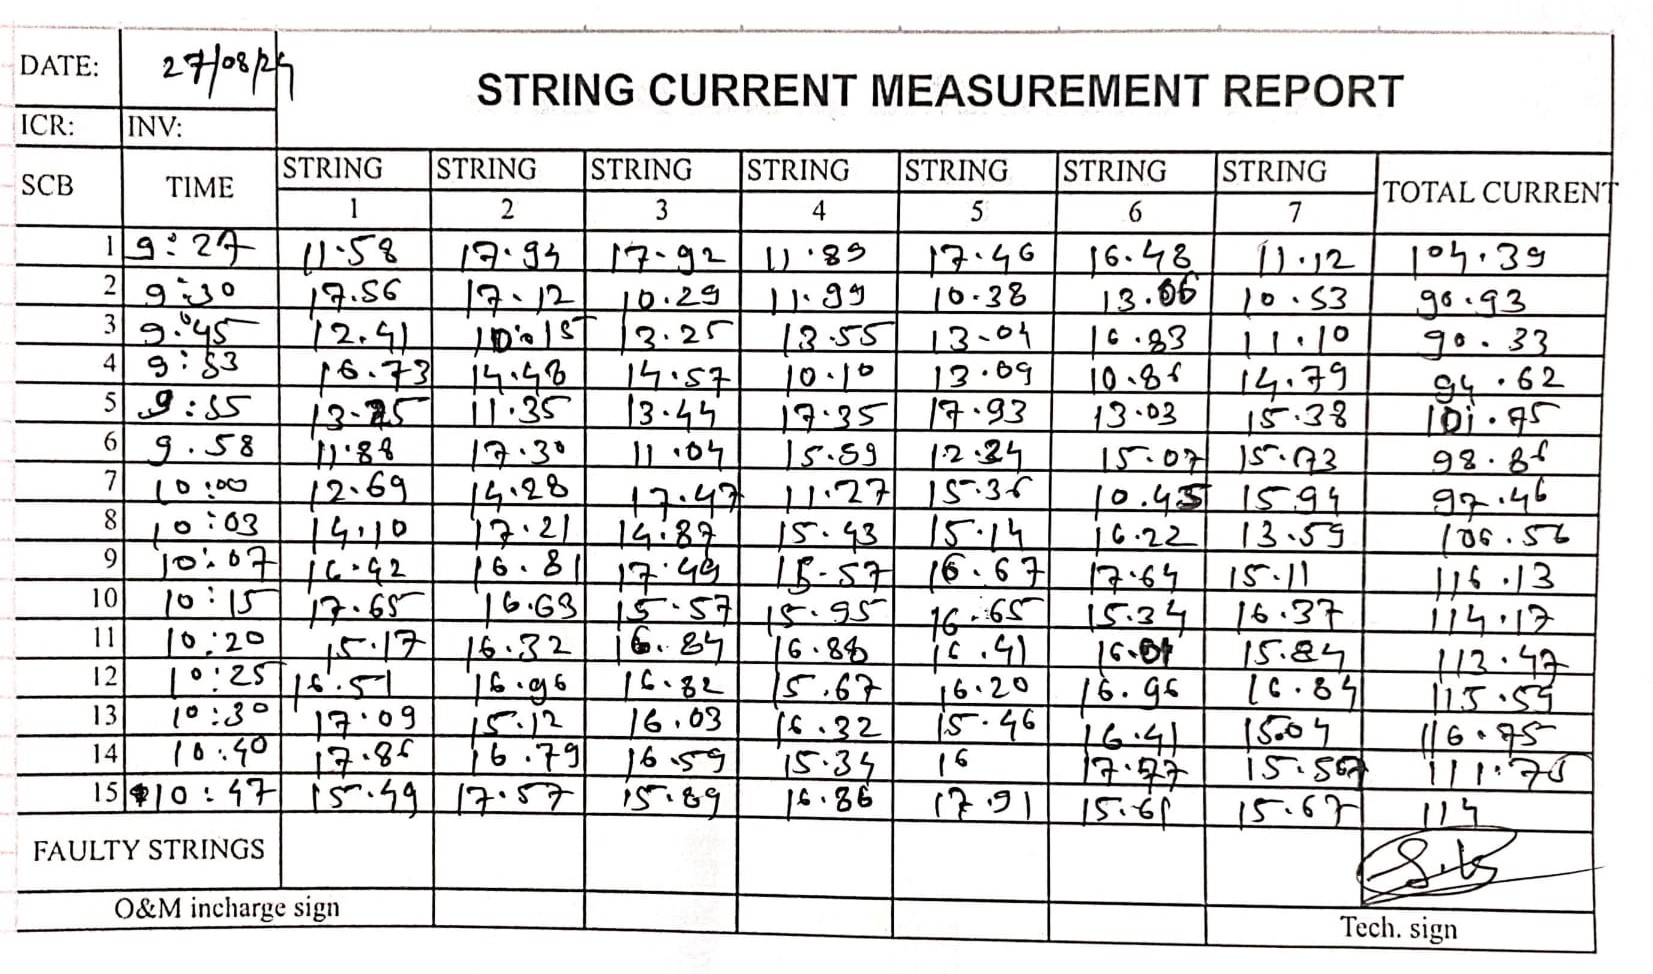 DATE: 27/08/24
STRING CURRENT MEASUREMENT REPORT
ICR: INV:
SCB TIME STRING STRING STRING STRING STRING STRING STRING TOTAL CURRENT
1 2 3 4 5 6 7
1 9:27 11.58 17.94 17.92 11.89 17.46 16.48 11.12 104.39
2 9:30 17.56 17.12 10.29 11.99 10.38 13.06 10.53 90.93
3 9:45 12.41 10.15 13.25 13.55 13.04 16.83 11.10 90.33
4 9:53 16.73 14.48 14.57 10.10 13.09 10.86 14.79 94.62
5 9:55 13.25 11.35 13.44 17.35 17.93 13.03 15.38 101.75
6 9.58 11.88 17.30 11.04 15.59 12.24 15.07 15.73 98.86
7 10:00 12.69 14.28 17.47 11.27 15.36 10.45 15.94 97.46
8 10:03 14.10 17.21 14.87 15.43 15.14 16.22 13.59 106.56
9 10:07 16.92 16.81 17.49 15.57 16.67 17.64 15.11 116.13
10 10:15 17.65 16.63 15.57 15.95 16.65 15.34 16.37 114.17
11 10:20 15.17 16.32 16.84 16.88 16.41 16.01 15.84 113.47
12 10:25 16.51 16.96 16.82 15.67 16.20 16.96 16.84 115.59
13 10:30 17.09 15.12 16.03 16.32 15.46 16.41 15.04 116.75
14 10:40 17.86 16.79 16.59 15.34 16 17.57 15.567 111.75
15 10:47 15.49 17.57 15.89 16.86 17.91 15.61 15.67 114
FAULTY STRINGS
O&M incharge sign Tech. sign